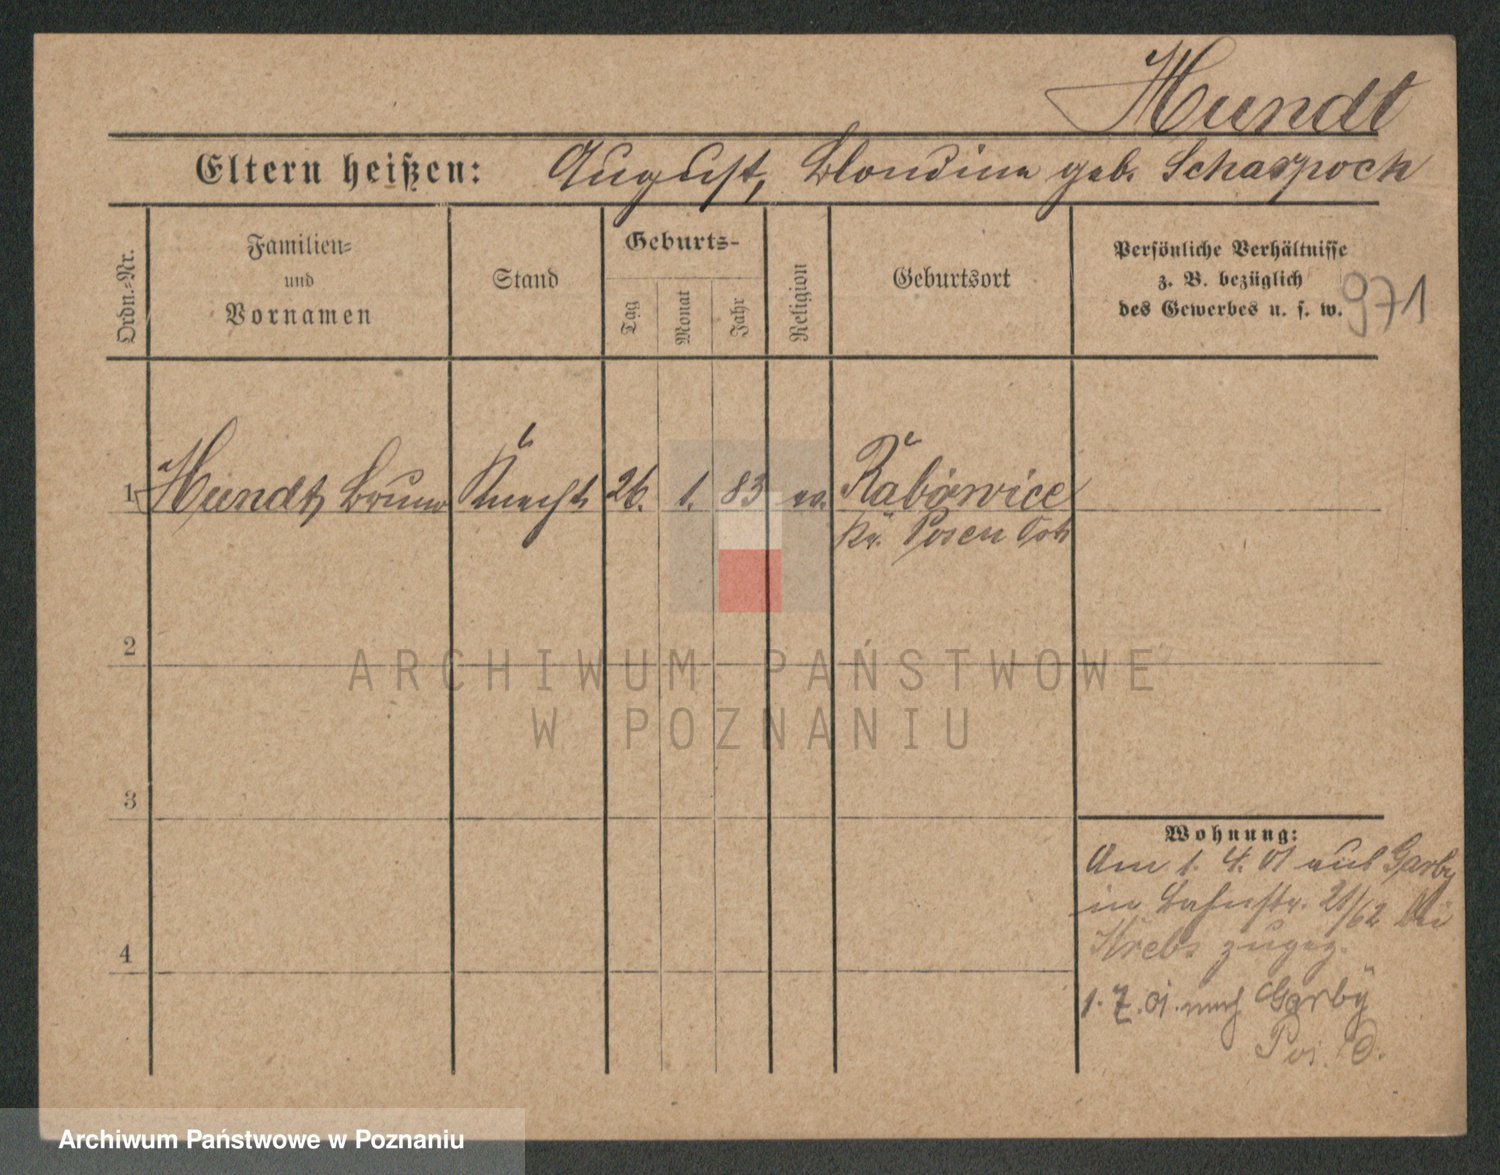 Hundt
Eltern heißen: August, Blondina geb. Schaspock
Ordn.-Nr.
Familien-
und
Vornamen
Stand
Geburts-
Tag
Monat
Jahr
Religion
Geburtsort
Persönliche Verhältnisse
z. B. bezüglich
des Gewerbes u. s. w.
971
1 Hundt, Bruno Knecht 26. 1. 83 ev. Rabowice
Kr. Posen Ost
2
3
4
Wohnung:
Am 1. 4. 01 aus Garby
in Bahnstr. 21/62 bei
Krebs zugez.
1. 7. 01. nach Garby
Pos. O.
ARCHIWUM PAŃSTWOWE
W POZNANIU
Archiwum Państwowe w Poznaniu